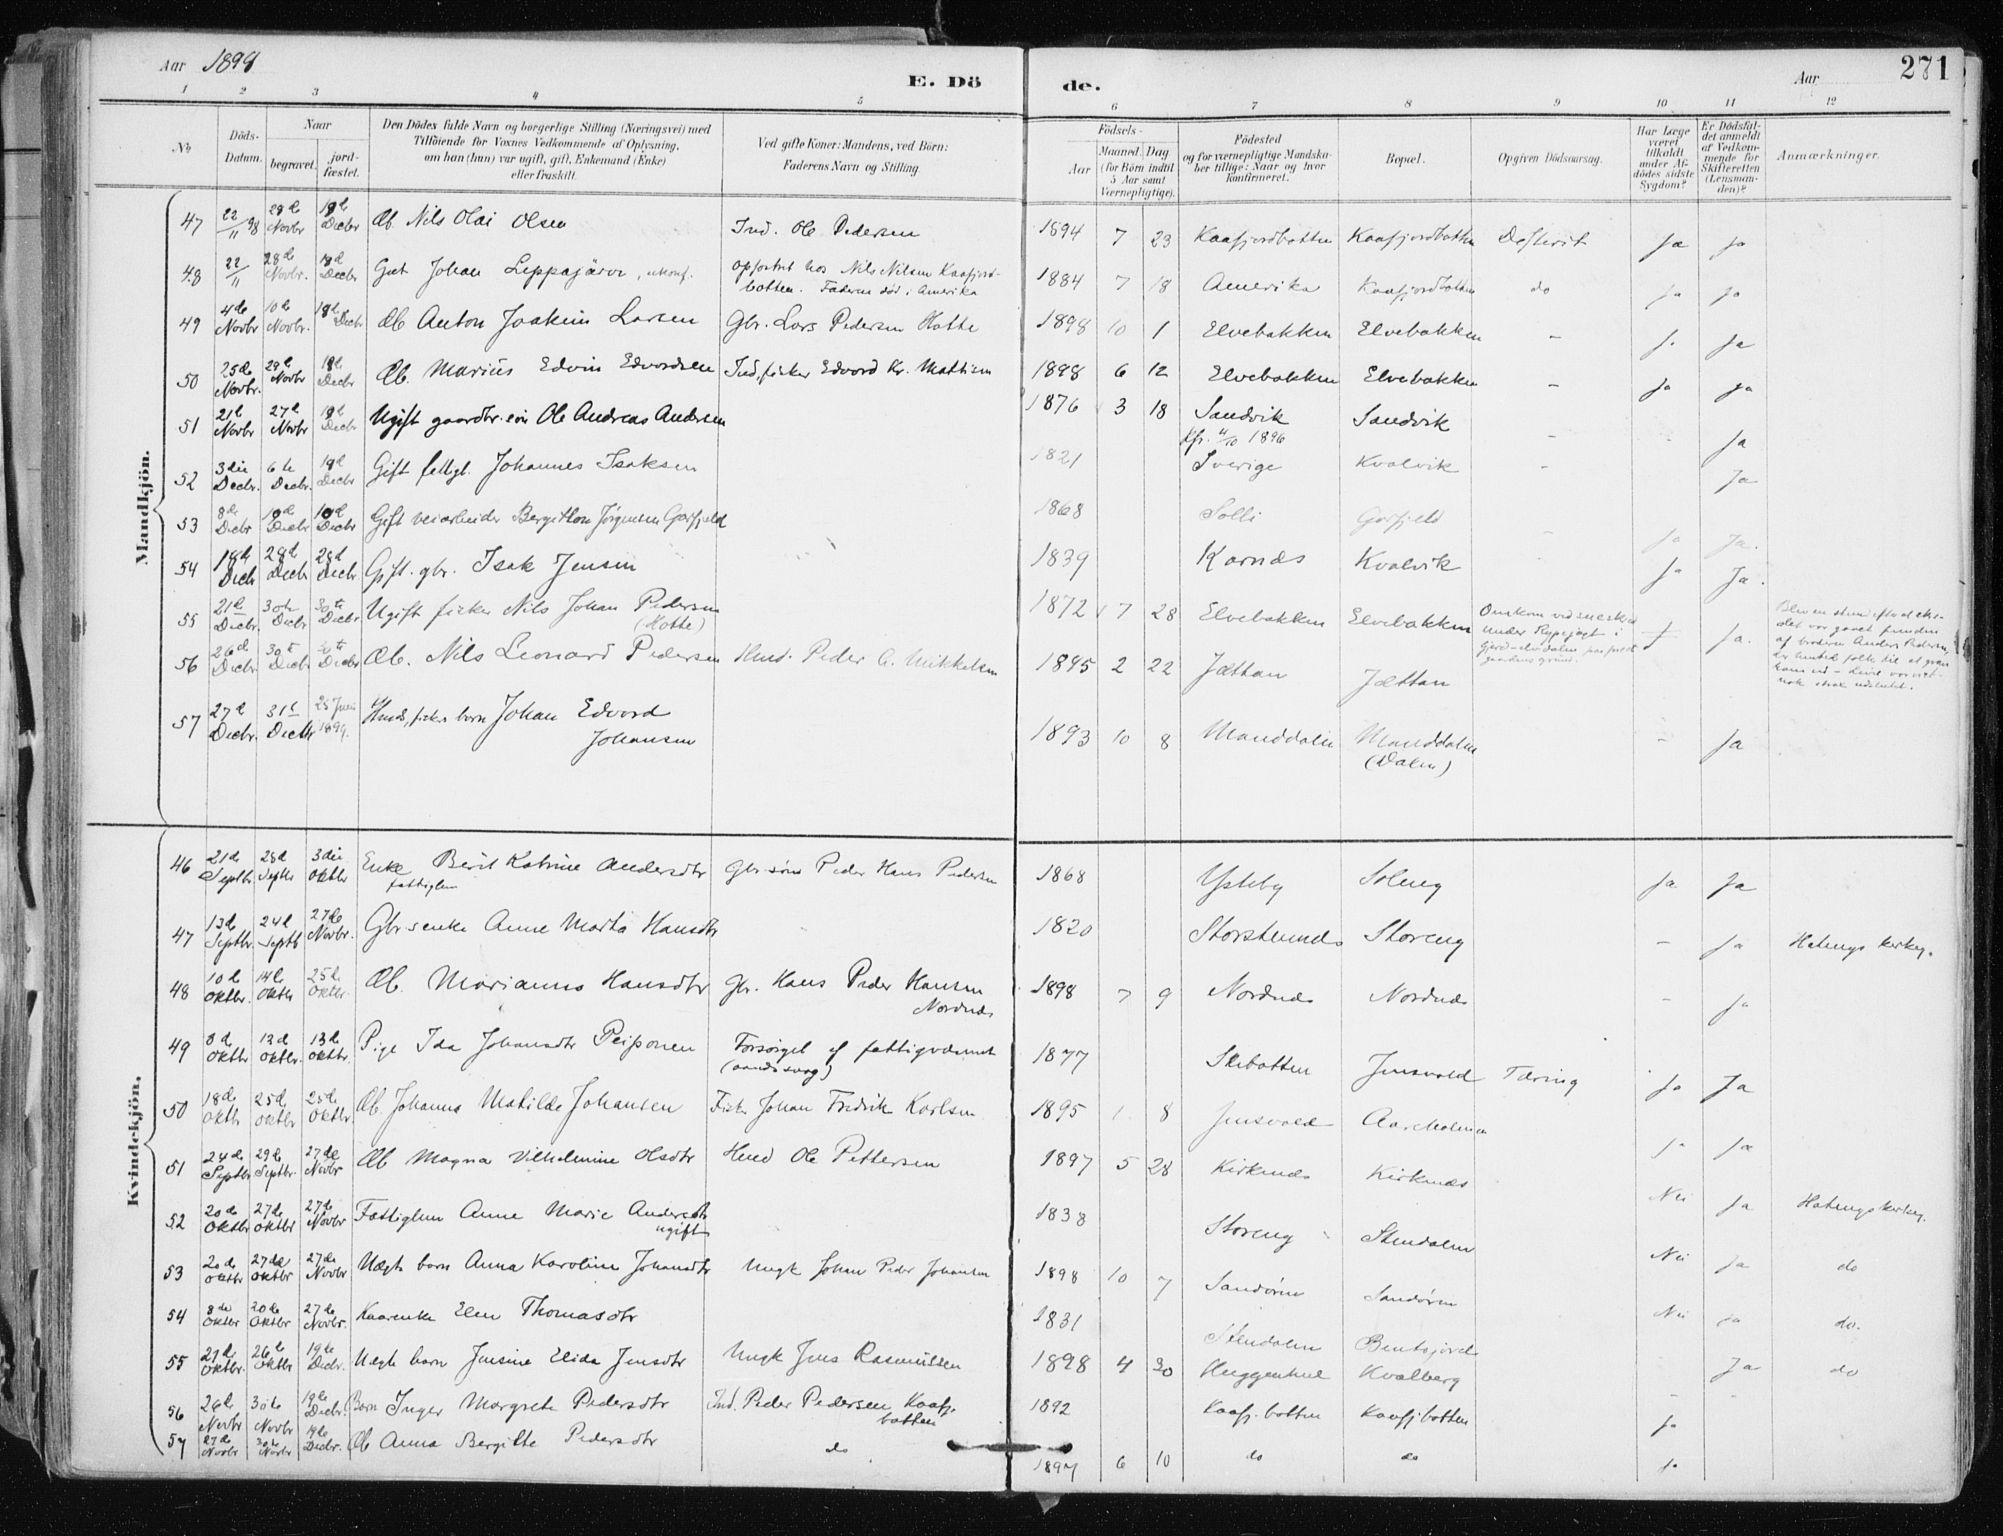 Aar 1898
E. Döde.
Aar
271
1 2 3 4 5 6 7 8 9 10 11 12
No
Döds-Datum.
Naar
begravet.
jord-fæstet.
Den Dödes fulde Navn og borgerlige Stilling (Næringsvei) med
Tilföiende for Voxnes Vedkommende af Oplysning,
om han (hun) var ugift, gift, Enkemand (Enke)
eller fraskilt.
Ved gifte Koner: Mandens, ved Börn:
Faderens Navn og Stilling.
Födsels-
Aar
Maaned. Dag
(for Börn indtil
5 Aar samt
Værnepligtige).
Födested
og for værnepligtige Mandska-
ber tillige: Naar og hvor
konfirmeret.
Bopæl.
Opgiven Dödsaarsag.
Har Læge
været
tilkaldt
under Af-
dödes sidste
Sygdom?
Er Dödsfal-
det anmeldt
af Vedkom-
mende for
Skifteretten
(Lensman-
den)?
Anmærkninger.
Mandkjön.
47 22/11 98 Novbr Decbr Æb. Nils Olai Olsen Ind. Ole Pedersen 1894 7 23 Kaafjordbotten Kaafjordbotten Difterit Ja Ja
48 22/11 28de Novbr. Decbr Gut Johan Leppajärvi, ukonf. opfostret hos Nils Nilsen Kaafjord-
botten. Faderen död i Amerika 1884 7 18 Amerika Kaafjordbotten do Ja Ja
49 4de Novbr 10de Novbr. Decbr Æb Anton Joakim Larsen Gbr. Lars Pedersen Hotte 1898 10 1 Elvebakken Elvebakken - Ja
50 25de Novbr. Novbr Decbr Æb. Marius Edvin Edvardsen Ind, fisker Edvard Kr. Mathisen 1898 6 12 Elvebakken Elvebakken - Ja Ja
51 21de Novbr 27de Novbr Decbr Ugift gaardbr.sön Ole Andreas Andersen 1876 3 18 Sandvik
Kfr. 4/10 1896 Sandvik - Ja
52 3die Decbr. 6te Decbr. Decbr Gift fattigl. Johannes Isaksen 1821 Sverige Kvalvik - Ja
53 8de Decbr Decbr Decbr Gift veiarbeider Bergithon Jørgensen Gorfjeld 1868 Solli Gorfjeld - Ja Ja.
54 18de Decbr 28de Decbr 28de Decbr Gift. gbr. Isak Jensen 1839 Kornæs Kvalvik Ja Ja.
55 21de Decbr. 30te Decbr 30te Decbr. Ugift fisker Nils Johan Pedersen
(Hotte) 1872 7 28 Elvebakken Elvebakken Omkom ved sneskred
under Rypejagt i Ja.
af broderen Anders Pedersen,
56 26de Decbr 30te Decbr Decbr Æb. Nils Leonard Pedersen Hmd. Peder A. Mikkelsen 1895 2 22 Jættan Jættan
57 27de Decbr. 31te Decbr 1899. Hmds, fiskers barn Johan Edvard
Johansen 1893 10 8 Manddalen Manddalen
(Dalen) - Ja
Kvindekjön.
46 21de Septbr 28de Septbr 3die Oktbr Enke Berit Katrine Andersdtr
fattiglem Gbr.söns Peder Hans Pedersen 1868 Ysteby Soleng Ja Ja
47 13de Septbr. 24de Septb 27de Novbr. Gbr.senke Anne Marta Hansdtr 1820 Storsteinnæs Storeng - Ja Hatengs kirkeg.
48 10de Oktbr. 14de Oktbr 25de Oktbr. Æb. Marianna Hansdtr Gbr. Hans Peder Hansen
Nordnæs 1898 7 9 Nordnæs Nordnæs - Ja
49 8de Oktbr 13de Oktbr. 13de Oktbr. Pige Ida Johansdtr Peiponen Forsörget af fattigvæsenet
(aandssvag) 1877 Skibotten Jensvold Tæring Ja Ja
50 18de Oktbr 25de Oktbr 25de Oktbr. Æb. Johanna Matilde Johansen Fisker Johan Fredrik Karlsen 1895 1 8 Jensvold Aarcholmen Ja Ja
51 24de Septbr 29de Septbr. 27de Novbr Æb Magna Vilhelmine Olsdtr Hmd Ole Pettersen 1897 5 28 Kirkenæs Kirkenæs Nei Ja Hatengs kirkeg.
52 20de Oktbr 27de Oktbr 27de Novbr Fattiglem Anne Marie Andersdtr
ugift 1838 Storeng Stendalen Nei Ja do
53 20de Oktbr 27de Oktbr 27de Novbr Uægte barn Anna Karoline Johansdtr Ungk Johan Peder Johansen 1898 10 7 Sandören Sandören Nei Ja do.
54 8de Oktbr 20de Oktbr 27de Novbr. Kaarenke Elen Thomasdtr 1831 Stendalen Bentsjord Ja do
55 Oktbr. 26de Oktbr 19de Decbr. Uægte barn Jensine Elida Jensdtr Ungk Jens Rasmussen 1898 4 30 Huggenhul Kvalberg - -
56 26de Novbr 30te Novbr 19de Decbr. Barn Inger Margrete Pedersdtr Ind. Peder Pedersen Kaafj.
botten 1892 Kaafj. botten Kaafj botten Ja
57 27de Novbr 30te Novbr 19de Decbr. Æb Anna Bergitte Pedersdtr do 1897 6 10 do do Ja